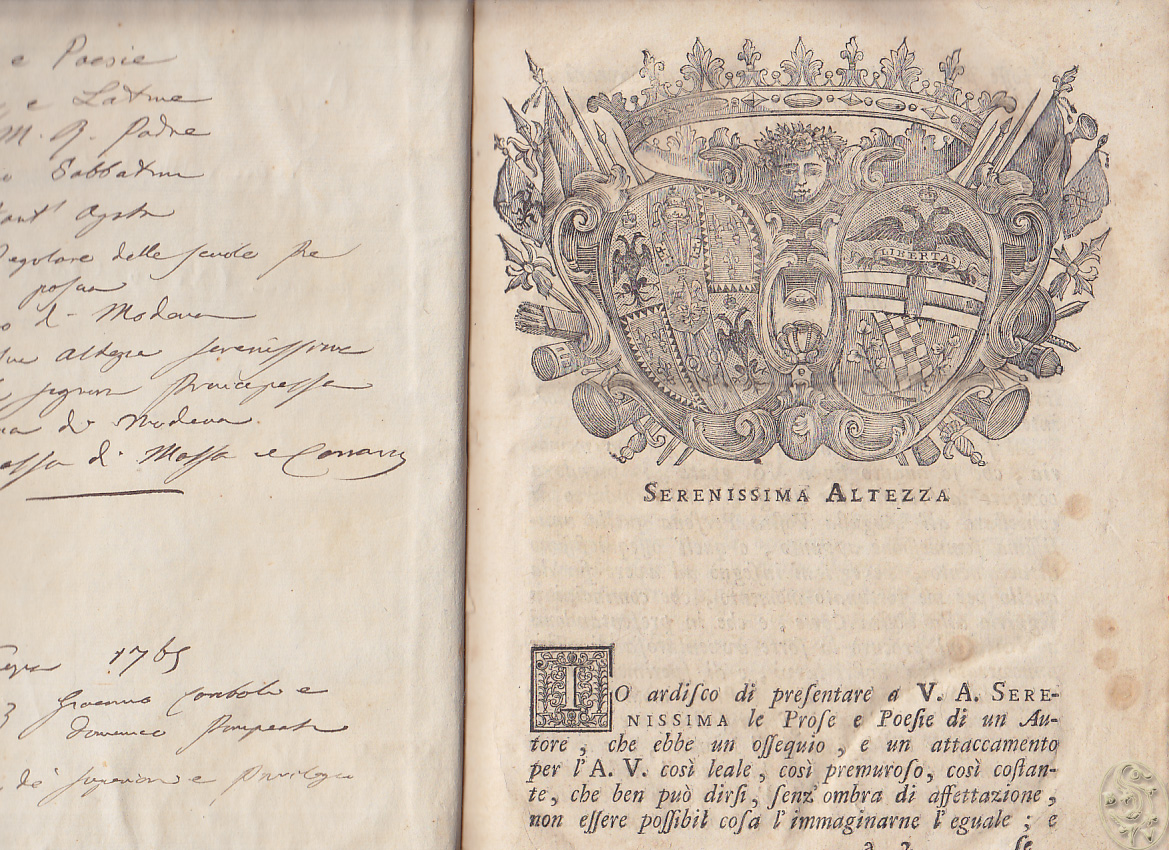 e Poesie
e Latine
M. R. Padre
Sabbatini
Sant' Agost
Regolare delle scuole Pie
posna
di Modena
Sua Altezza serenissima
signora Principessa
di Modena.
di Massa e Carrara
1765
Giovanni e
Domenico
de' superiori e Privilegio
LIBERTAS
SERENISSIMA ALTEZZA
IO ardiſco di preſentare a V. A. SERE-
NISSIMA le Proſe e Poeſie di un Au-
tore, che ebbe un oſſequio, e un attaccamento
per l'A. V. così leale, così premuroſo, così coſtan-
te, che ben può dirſi, ſenz' ombra di affettazione,
non eſſere poſſibil coſa l'immaginarne l'eguale; e
a 2 ſe